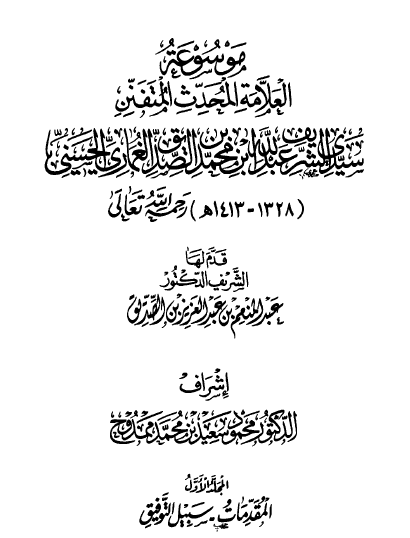 مَوْسُوْعَةُ
العَلاَّمَةِ المُحَدِّثِ المُتَفَنِّنِ
سَيِّدِي الشَّرِيْف عَبْدِ اللَّه ابْنِ مُحَمَّد بْنِ الصِّدِّيْقِ الغُمَارِيِّ الحَسَنِيِّ
(١٣٢٨ - ١٤١٣هـ) رَحِمَهُ اللَّهُ تَعَالَى
قَدَّمَ لَهَا
الشَّرِيفُ الدُّكْتُوْرُ
عَبْدُ المُنْعِمِ بْن عَبْدِ العَزِيْزِ بْنِ الصِّدِّيْقِ
إِشْرَافُ
الدُّكْتُوْرِ مَحْمُوْد سَعِيْد بْنِ مُحَمَّد مَمْدُوْح
المُجَلَّدُ الأَوَّلُ
المُقَدِّمَاتُ - سَبِيْلُ التَّوْفِيْقِ